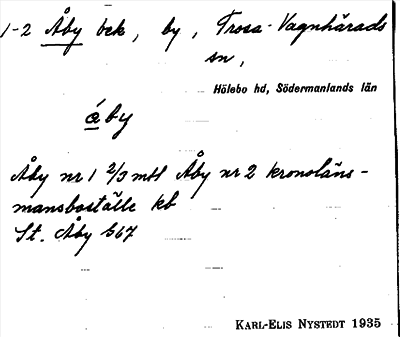 1-2 Åby bck, by, Trosa-Vagnhärads
sn,
Hölebo hd, Södermanlands län
áby
Åby nr 1 2/3 mtl Åby nr 2 kronoläns-
mansboställe kb
St. Åby S67
KARL-ELIS NYSTEDT 1935